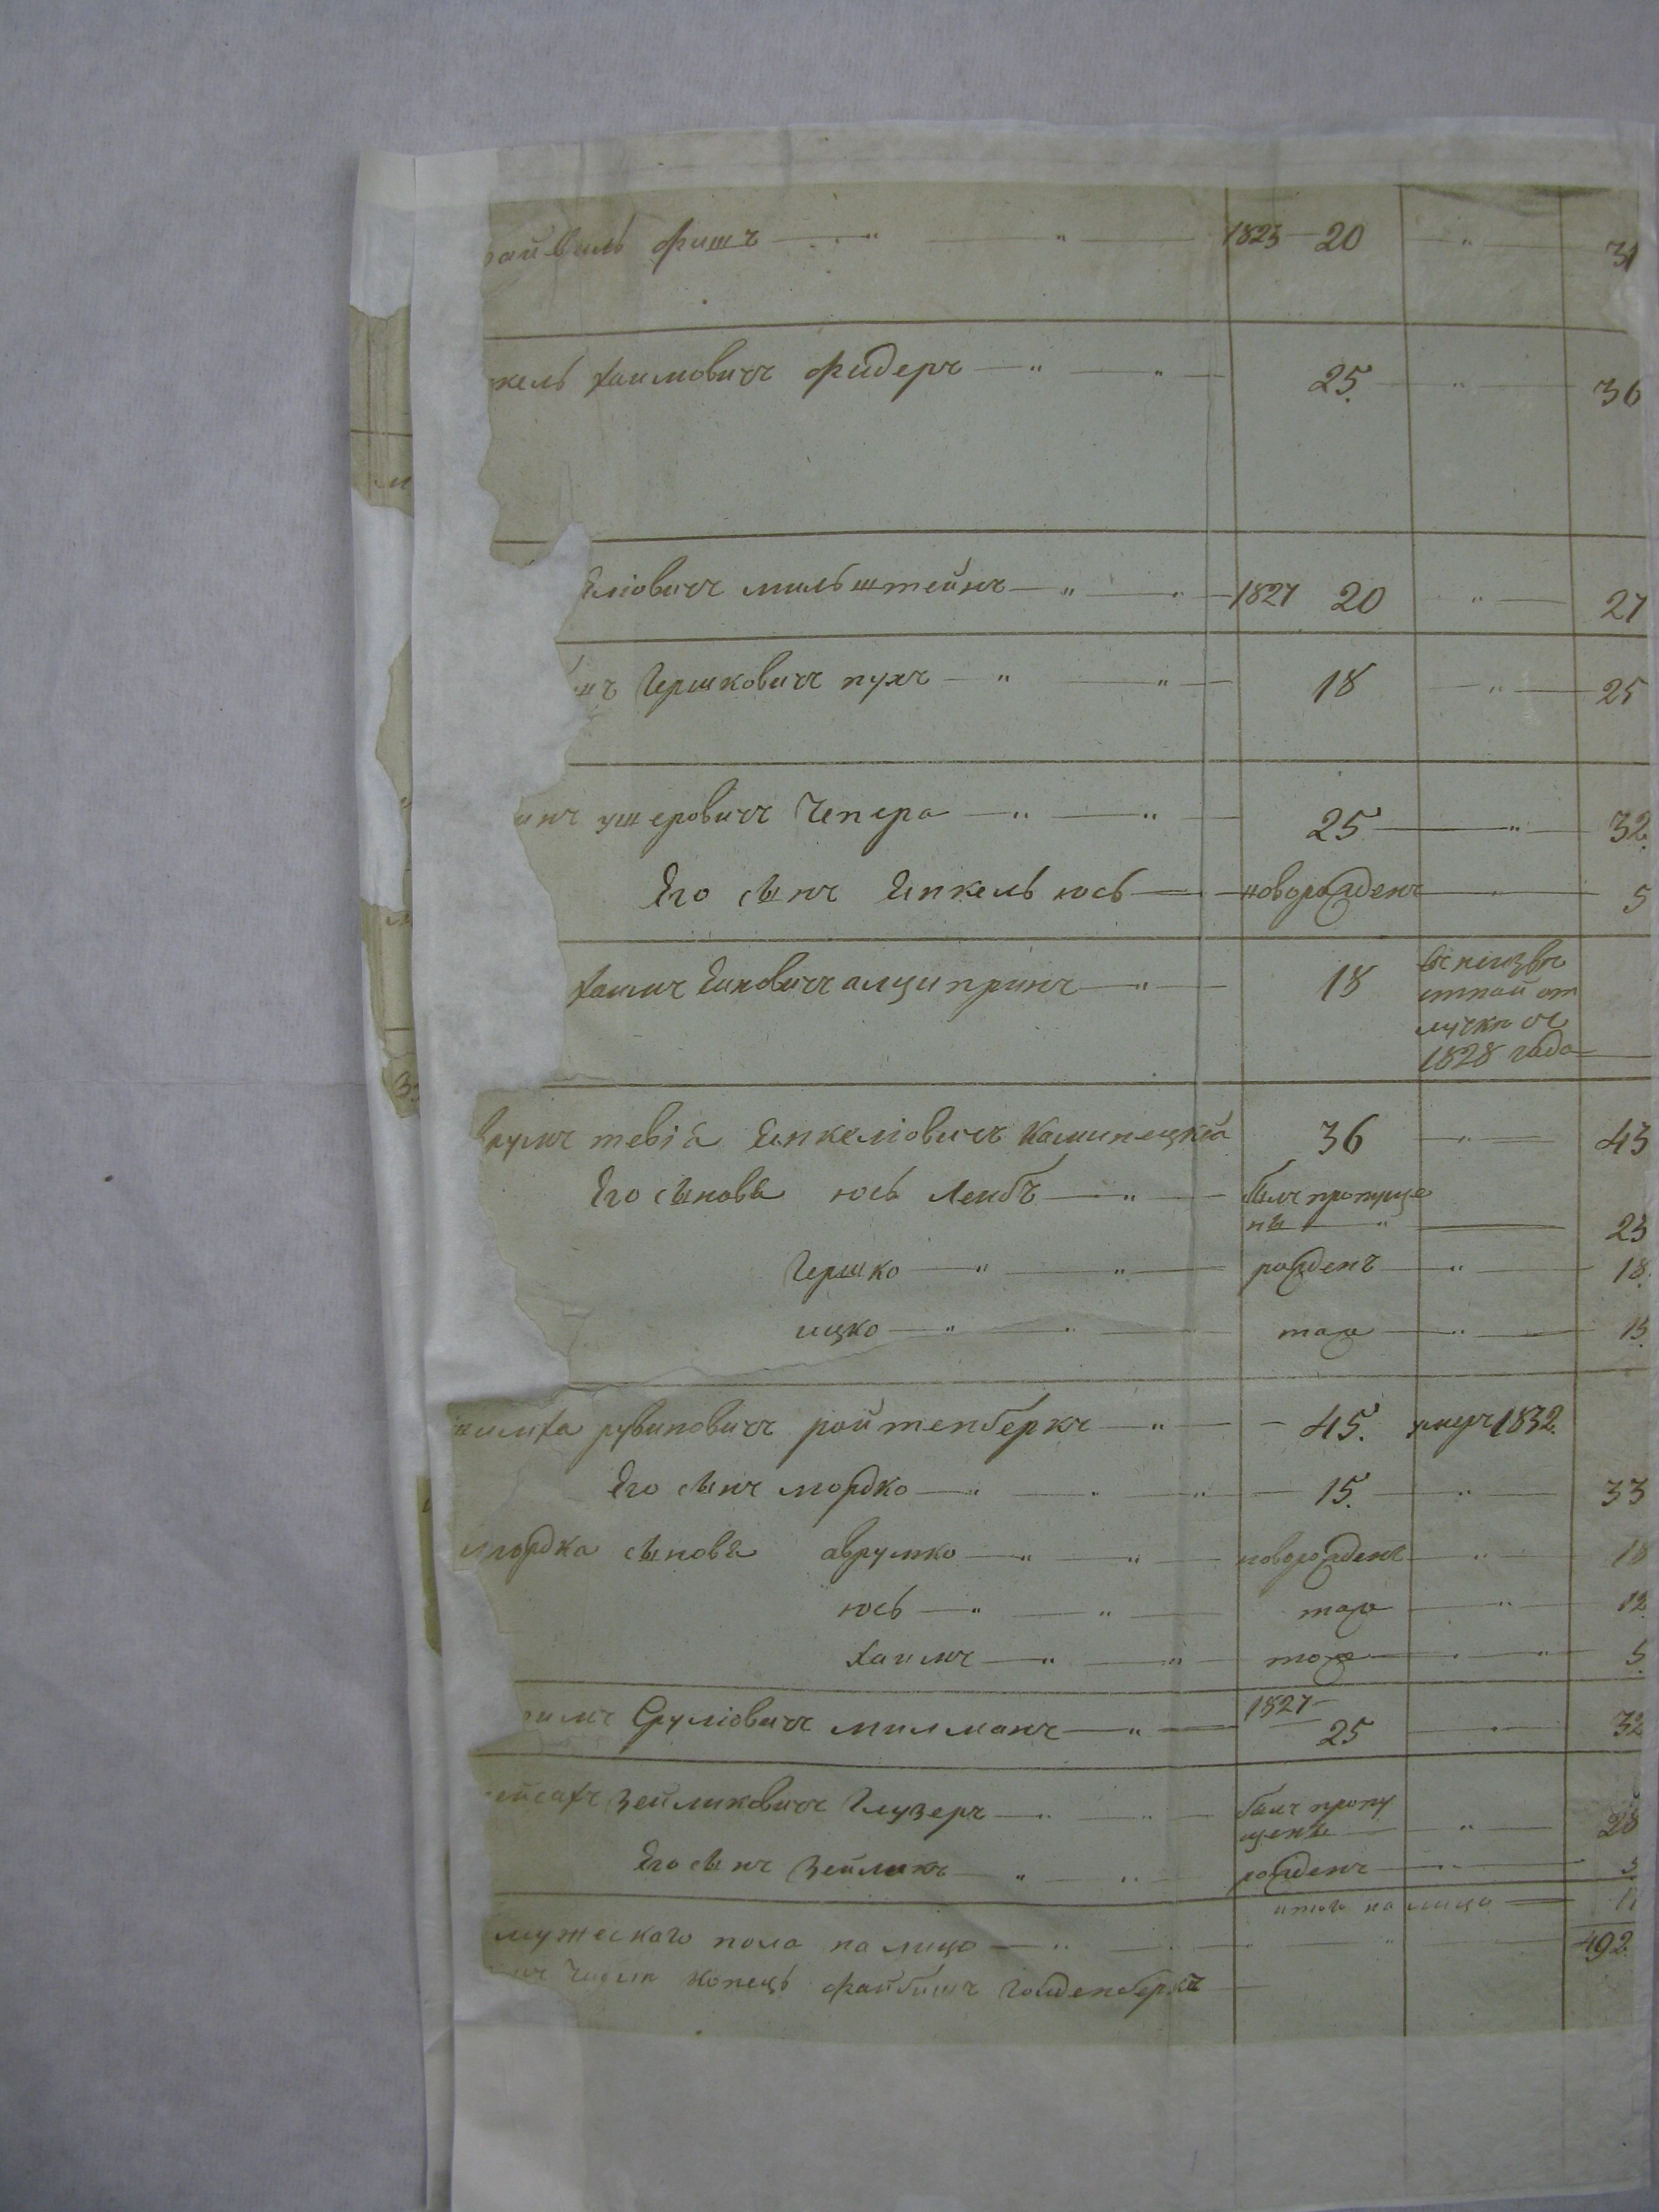 айвиль фишъ — " — " — 1823 — 20 — " — 31
кель хаимовичъ фидеръ — " — " — 25. — " — 36
еліовичъ мильштейнъ — " — " — 1827 20 " — 27
Гершковичъ пухъ — " — " — 18 — " — 25
инъ ушеровичъ Чепера — " — " — 25 — " — 32.
Его сынъ Янкель юсь — новорожденъ — " — 5
хаимъ янковичъ алциприпъ — " — 18 въ неизвѣ
стной от
лучкѣ съ
1828 года —
румъ тевія Янкеліовичъ Каминецкій 36 — " — 43
Его сыновя юсь Лейбъ — " — былъ пропуще
нъ — " — 23
Гершко — " — " — рожденъ — " — 18.
ицко — " — " — тож — " — 15.
симха рувиновичъ ройтенберкъ — " — 45. умеръ 1832.
Его сынъ мордко — " — " — " — 15. — " — 33
мордка сыновя аврумко — " — " — новорожденъ — " — 18
юсь — " — " — тож — " — 12
хаимъ — " — " — тож — " — " — 5.
Сруліовичъ милманъ — " — 1827 —
25 — " — 32
ейсахъ Зейликовичъ Глузеръ — " — " — былъ пропу
щенъ — " — 28
Его сынъ Зейликъ — " — " — рожденъ — " — 3
итого на лицо —
мужескаго пола на лицо — " — " — 492.
конецъ файбишъ Голденберкъ —